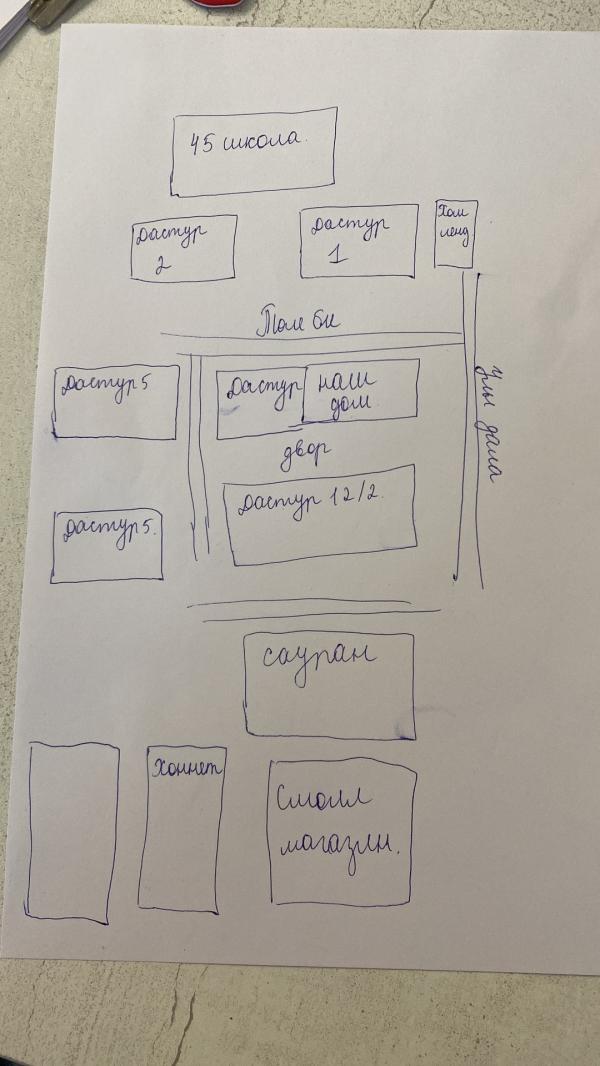 45 школа.
Дастур
2
Дастур
1
Хай
ленд
Толе би
Улы дала
Дастур 5
Дастур
наш
дом
двор
Дастур 12/2.
Дастур 5.
сауран
Хоннет
Смолл
магазин.